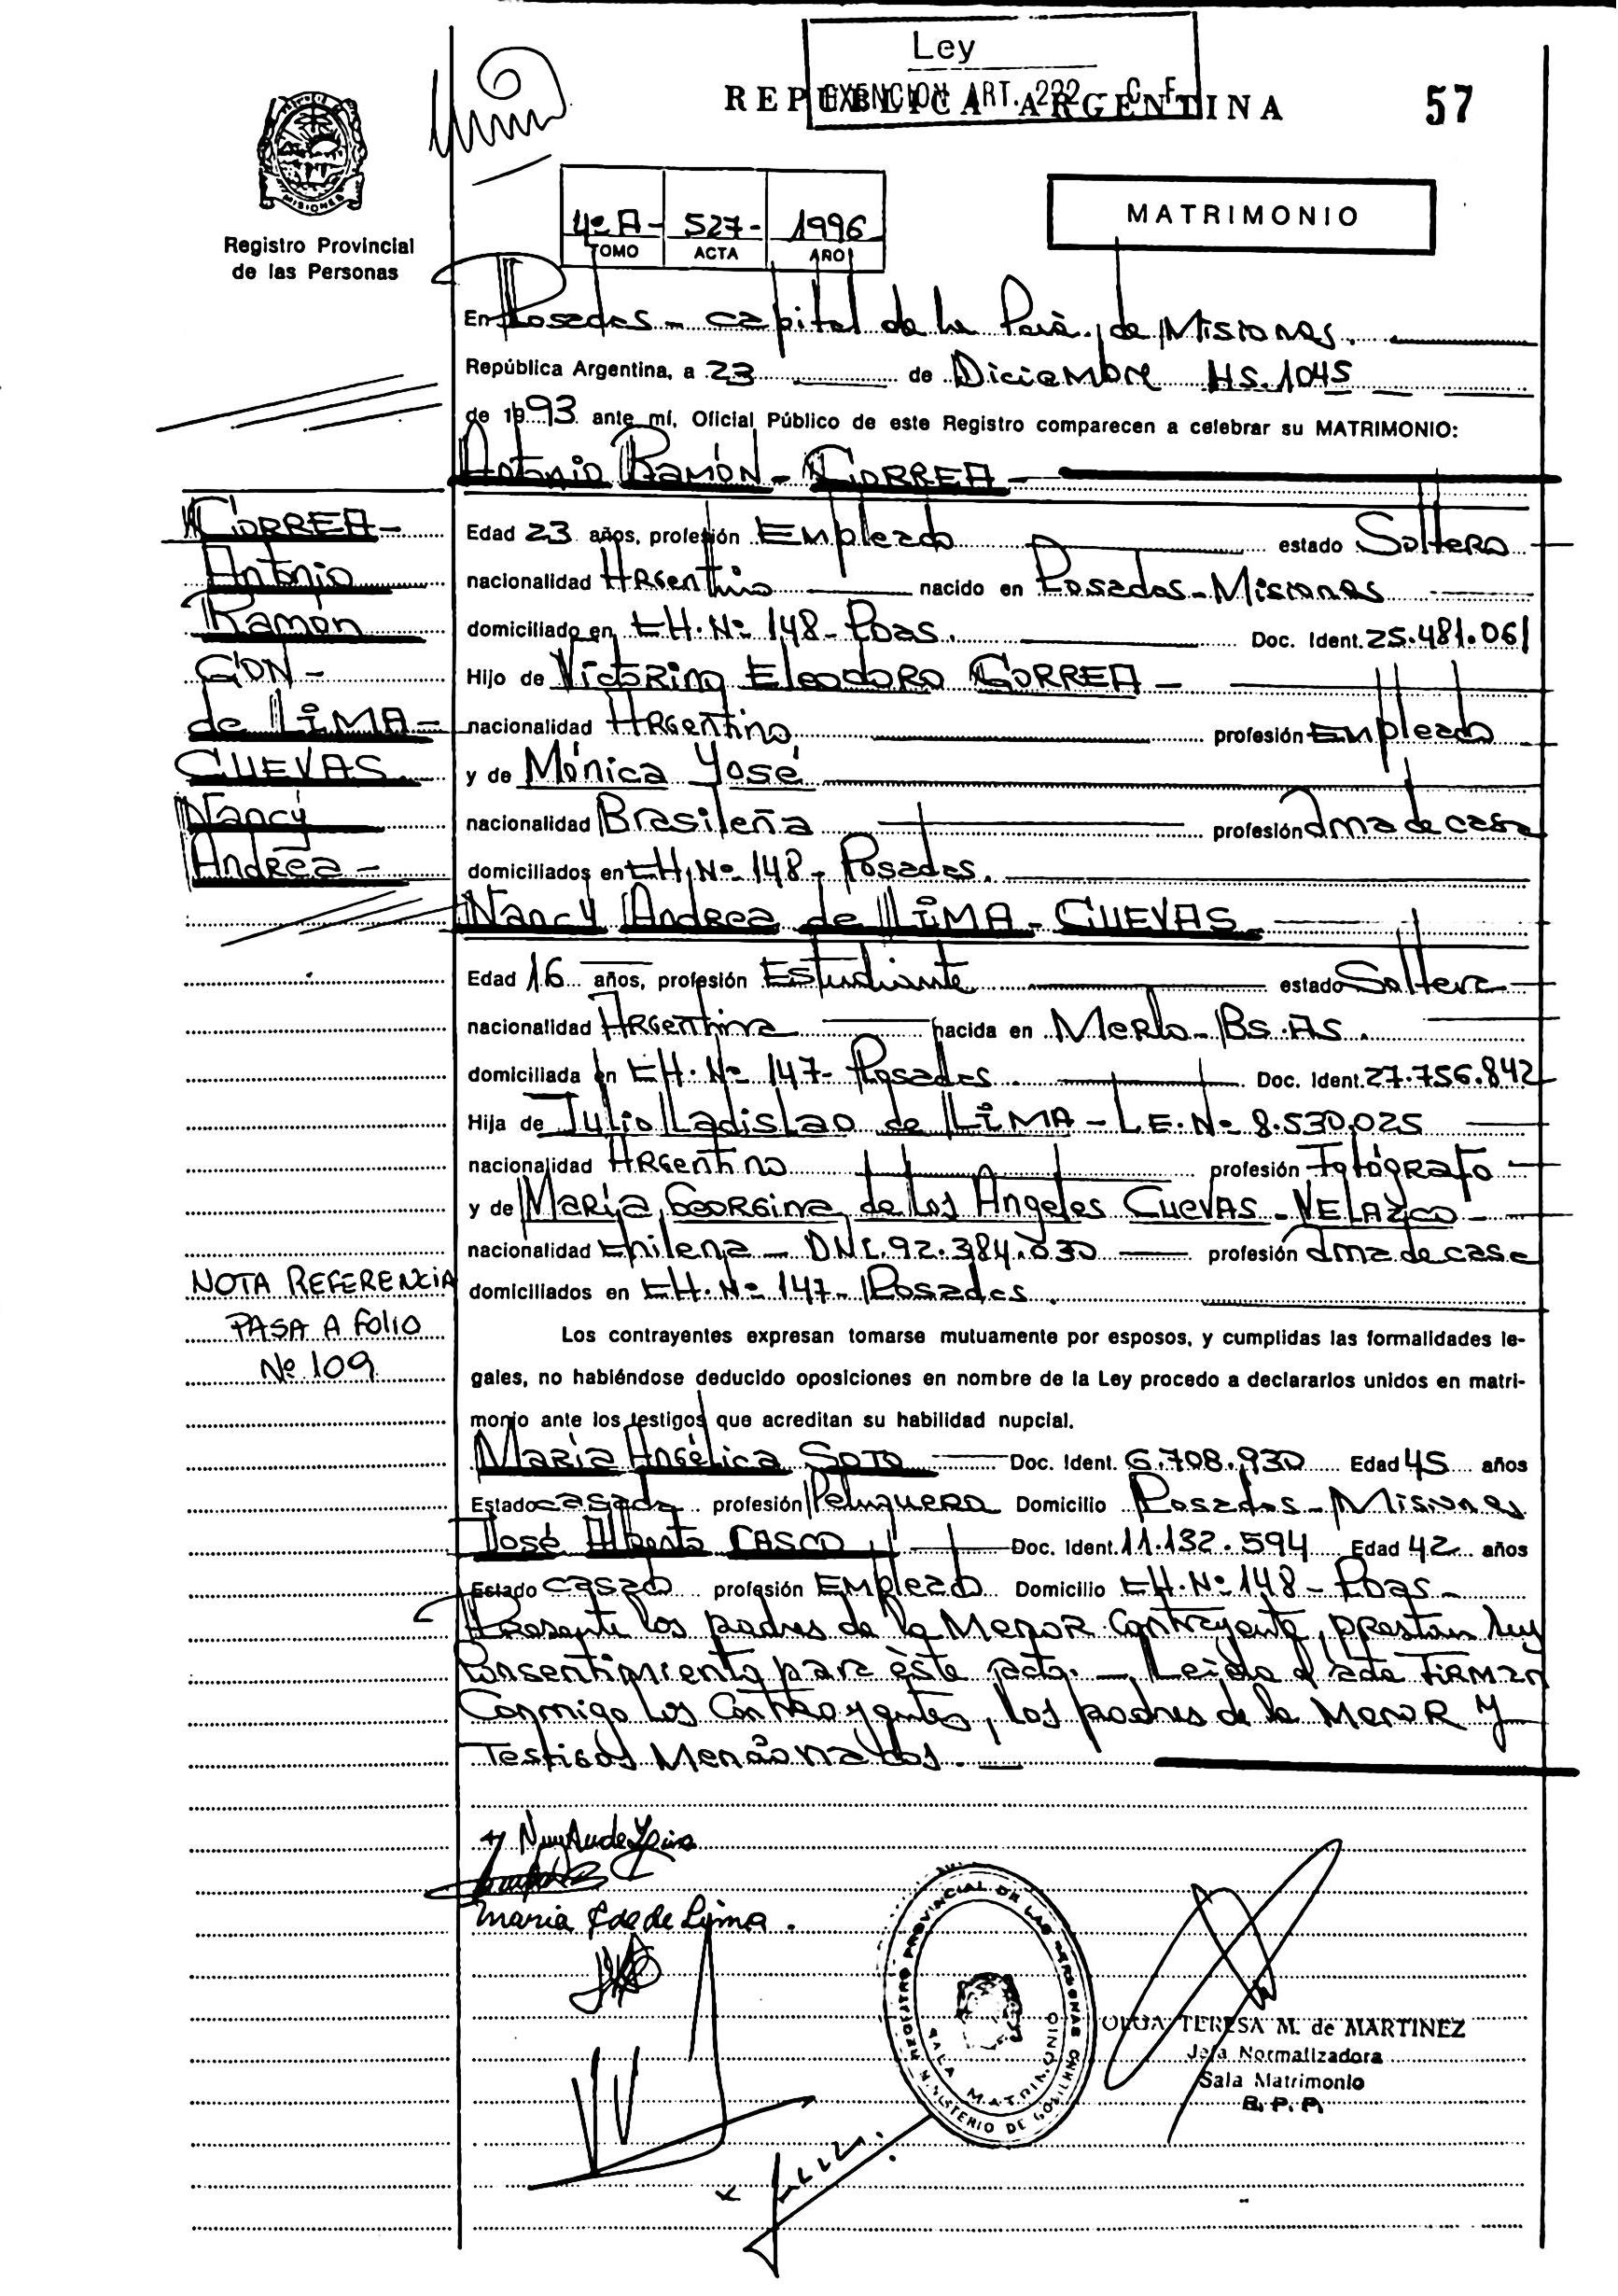 Ley
EXENCION ART. 222 C. F.
REPUBLICA ARGENTINA
57
MISIONES
Registro Provincial
de las Personas
4º A- 527- 1996
TOMO ACTA AÑO
MATRIMONIO
En Posadas - capital de la Pcia. de Misiones.
República Argentina, a 23 de Diciembre HS. 1045
de 1993 ante mí, Oficial Público de este Registro comparecen a celebrar su MATRIMONIO:
Antonio Ramón - CORREA -
CORREA -
Antonio
Ramon
CON -
de LIMA -
CUEVAS
Nancy
Andrea -
Edad 23 años, profesión Empleado estado Soltero
nacionalidad Argentino nacido en Posadas - Misiones
domiciliado en CH. Nº 148 - Pdas. Doc. Ident. 25.481.061
Hijo de Victorino Eleodoro CORREA -
nacionalidad Argentino profesión Empleado
y de Mónica Yosé
nacionalidad Brasileña profesión Ama de casa
domiciliados en CH. Nº 148 - Posadas.
Nancy Andrea de LIMA - CUEVAS
Edad 16 años, profesión Estudiante estado Soltera
nacionalidad Argentina nacida en Merlo - Bs. As.
domiciliada en CH. Nº 147 - Posadas. Doc. Ident. 27.756.842
Hija de Julio Ladislao de LIMA - L.E. Nº 8.530.025
nacionalidad Argentino profesión Fotógrafo
y de María Georgina de los Angeles Cuevas - VELAZCO -
nacionalidad chilena - DNI. 92.384.030 profesión Ama de casa
domiciliados en CH. Nº 147 - Posadas.
NOTA REFERENCIA
PASA A FOLIO
Nº 109
Los contrayentes expresan tomarse mutuamente por esposos, y cumplidas las formalidades le-
gales, no habiéndose deducido oposiciones en nombre de la Ley procedo a declararlos unidos en matri-
monio ante los testigos que acreditan su habilidad nupcial.
María Angélica SOTO Doc. Ident. 6.708.930 Edad 45 años
Estado casada profesión Peluquera Domicilio Posadas - Misiones
José Alberto CASCO Doc. Ident. 11.132.594 Edad 42 años
Estado casado profesión Empleado Domicilio CH. Nº 148 - Pdas -
Presente los padres de la Menor Contrayente, prestan su
Consentimiento para éste acto. - Leída el acta FIRMAN
Conmigo los Contrayentes, los padres de la Menor y
Testigos Mencionados.
Maria C de de Lima.
REGISTRO PROVINCIAL DE LAS PERSONAS
SALA MATRIMONIO
MINISTERIO DE GOBIERNO
OLGA TERESA M. de MARTINEZ
Jefa Normalizadora
Sala Matrimonio
R. P. P.